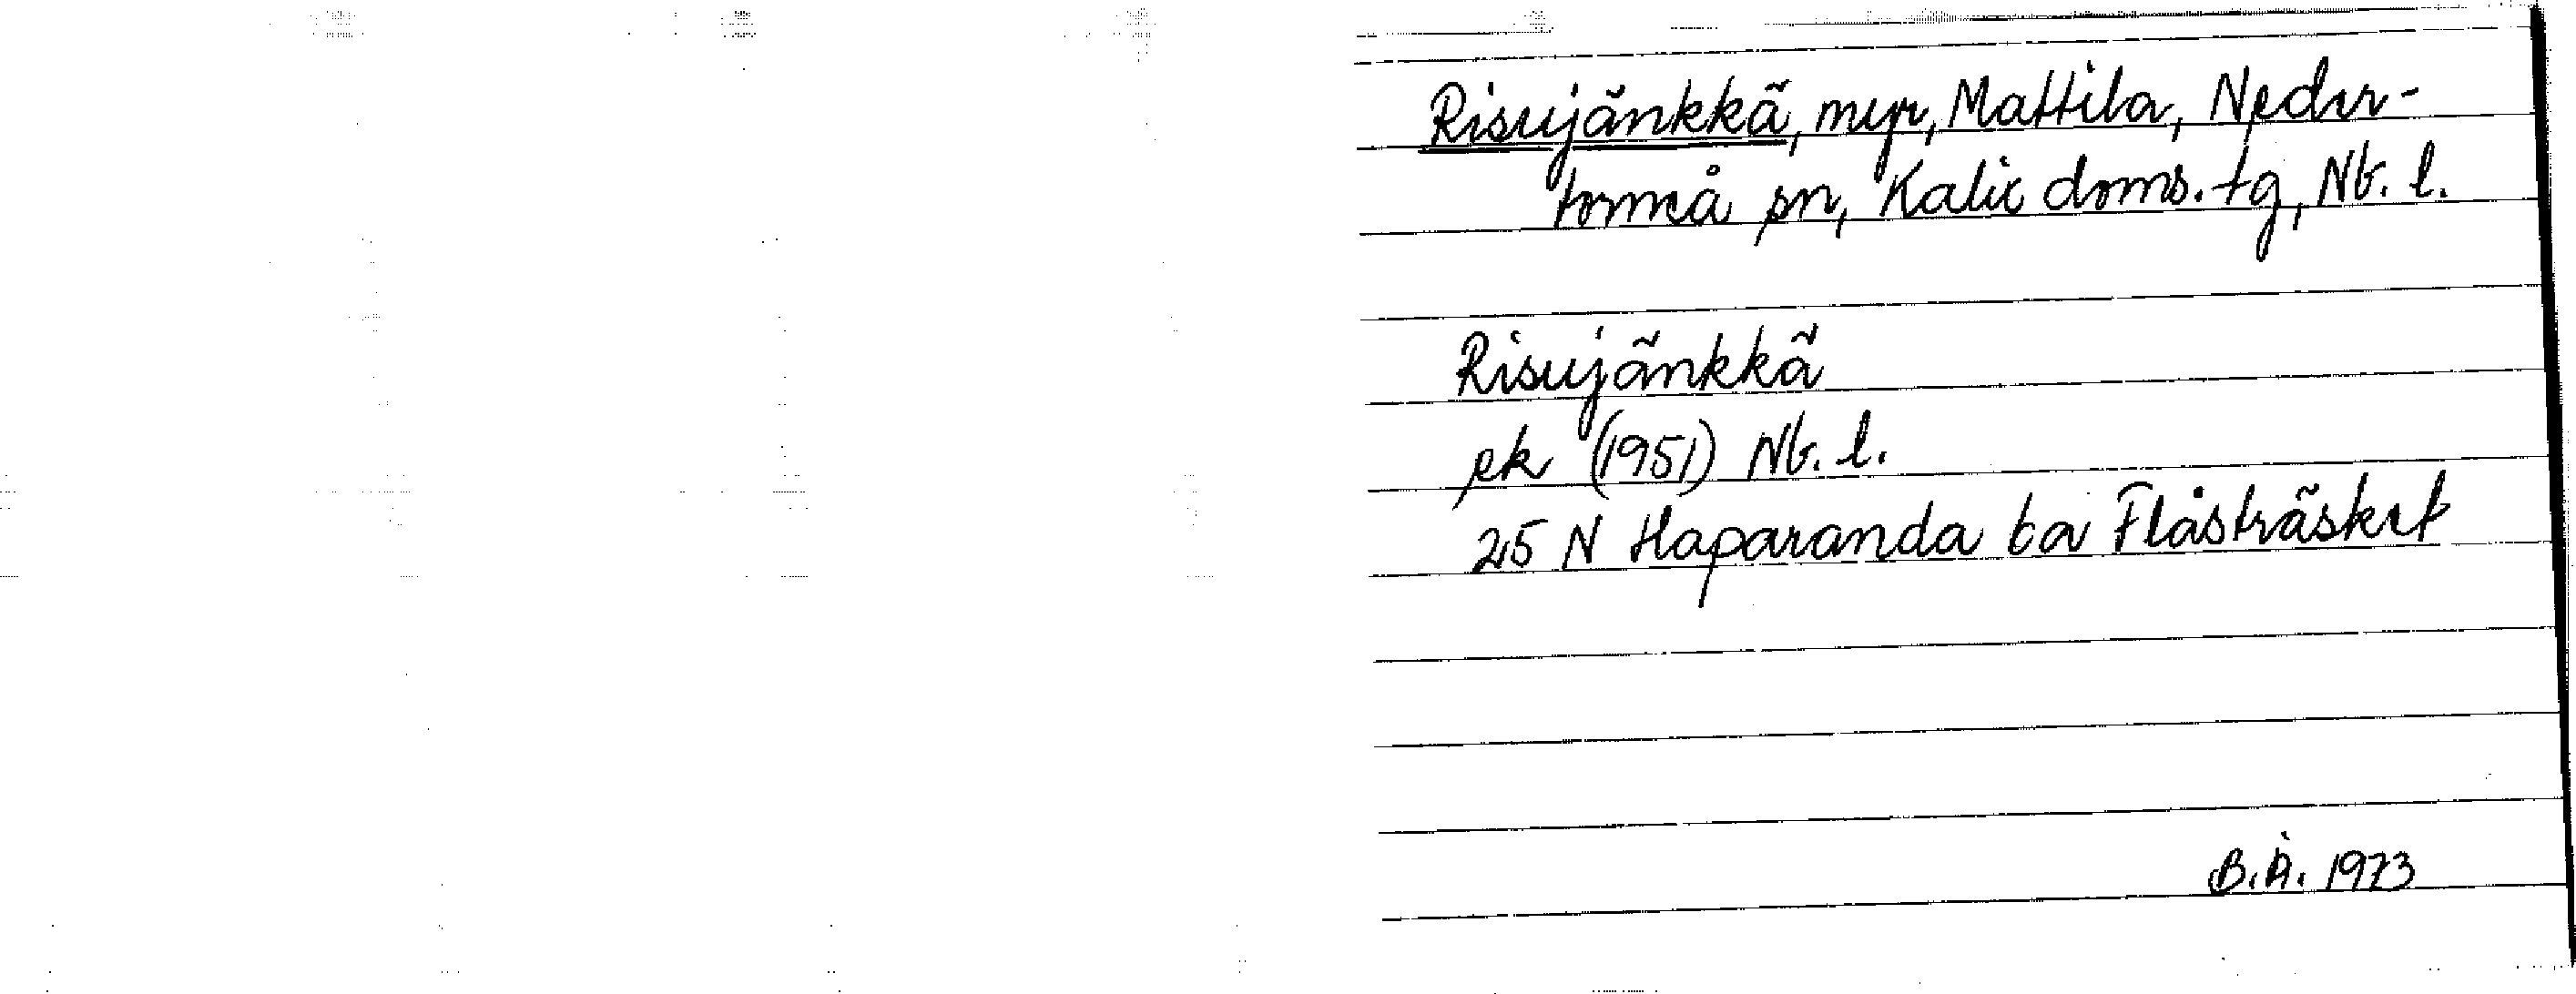 Risujänkkä, myr, Mattila, Neder-
torneå sn, Kalix doms.tg, Nb. l.
Risujänkkä
ek (1951) Nb. l.
25 N Haparanda ba Flåsträsket
B.Å. 1973